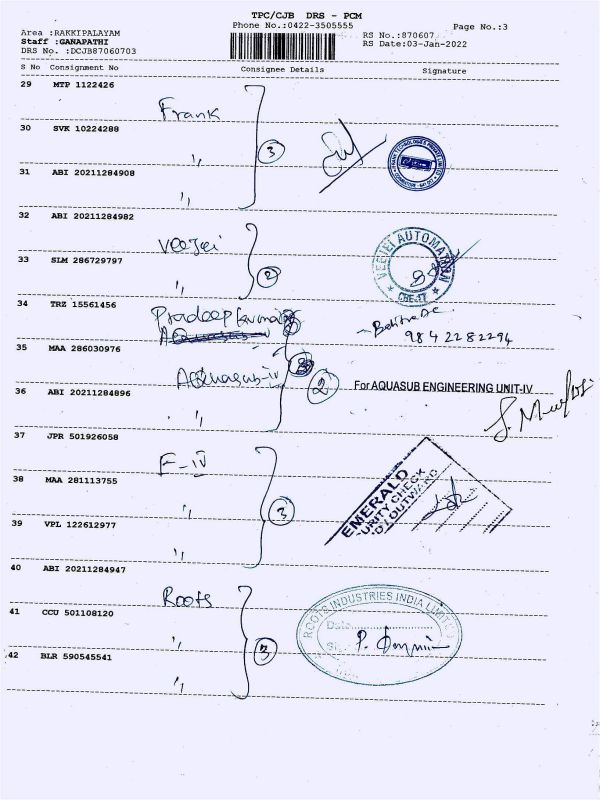 TPC/CJB DRS - PCM
Phone No.:0422-3505555
Page No.:3
Area :RAKKIPALAYAM
Staff :GANAPATHI
DRS No. :DCJB87060703
RS No.:870607
RS Date:03-Jan-2022
S No Consignment No Consignee Details Signature
29 MTP 1122426
Frank
30 SVK 10224288
"
3
31 ABI 20211284908
"
32 ABI 20211284982
Veejei
33 SLM 286729797
"
2
VEEJEI AUTOMATION
CBE-17
34 TRZ 15561456
Pradeep Kumar
9842282294
35 MAA 286030976
Aquasub-iv
2
For AQUASUB ENGINEERING UNIT-IV
36 ABI 20211284896
"
37 JPR 501926058
F-IV
38 MAA 281113755
"
3
EMERALD
URITY CHECK
D / OUTWARD
39 VPL 122612977
"
40 ABI 20211284947
Roots
41 CCU 501108120
"
3
ROOTS INDUSTRIES INDIA LIMITED
Date
42 BLR 590545541
"